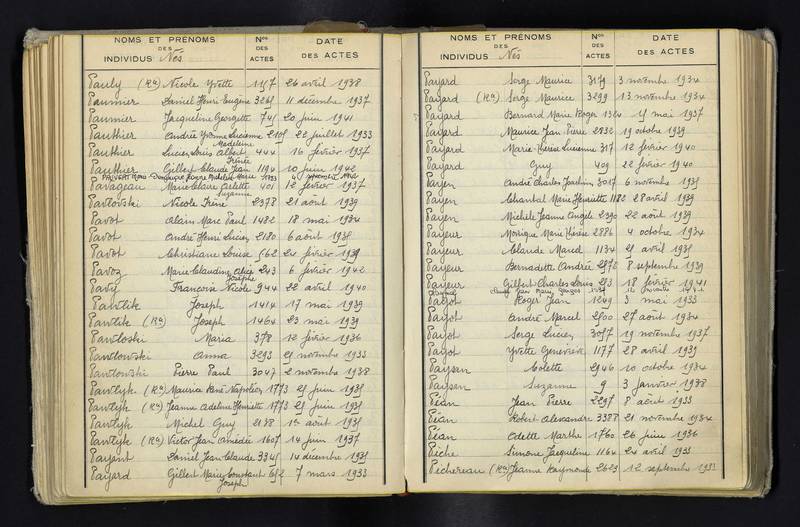 NOMS ET PRÉNOMS
DES
INDIVIDUS Nés
Nos
DES
ACTES
DATE
DES ACTES
Pauly (Rn) Nicole Yvette 1157 26 avril 1938
Paumier Daniel Henri Eugène 3265 11 décembre 1937
Paumier Jacqueline Georgette 745 20 juin 1941
Pauthier André Yvonne Lucienne 2105 22 juillet 1933
Madeleine
Pauthier Lucien Louis Albert 444 16 février 1937
Irénée
Pauthier Gilbert Claude Jean 1194 10 juin 1942
Pavageau Marie Claire Arlette 401 12 février 1937
Suzanne
Pavlovski Nicole Irène 2378 21 août 1939
Pavot Alain Marc Paul 1482 18 mai 1934
Pavot André Henri Lucien 2180 6 août 1935
Pavot Christiane Louise 562 24 février 1939
Pavoz Marie Claudine Alice 243 6 février 1942
Josèphe
Pavy Francois Nicole 944 22 avril 1940
Pawlik Joseph 1414 17 mai 1939
Pawlik (Rn) Joseph 1464 23 mai 1939
Pawloski Maria 378 12 février 1936
Pawlowski Anna 3293 29 novembre 1933
Pawlowski Pierre Paul 3047 2 novembre 1938
Pawlyk (Rn) Maurice René Napoléon 1773 25 juin 1935
Pawlyk (Rn) Jeanne Adeline Henriette 1773 25 juin 1935
Pawlyk Michel Guy 2178 1er août 1935
Pawlyk (Rn) Victor Jean Amédée 1607 14 juin 1937
Payant Daniel Jean Claude 3345 14 décembre 1935
Payard Gilbert Marie Constant 652 7 mars 1933
Joseph
NOMS ET PRÉNOMS
DES
INDIVIDUS Nés
Nos
DES
ACTES
DATE
DES ACTES
Payard Serge Maurice 3179 3 novembre 1934
Payard (Rn) Serge Maurice 3299 13 novembre 1934
Payard Bernard Marie Roger 1324 15 mai 1937
Payard Maurice Jean Pierre 2832 19 octobre 1939
Payard Marie-Thérèse Lucienne 317 12 février 1940
Payard Guy 409 22 février 1940
Payen André Charles Joachim 3017 6 novembre 1935
Payen Chantal Marie Henriette 1182 28 avril 1939
Payen Michèle Jeanne Angèle 2390 22 août 1939
Payeur Monique Marie Thérèse 2886 4 octobre 1934
Payeur Claude Maud 1134 21 avril 1935
Payeur Bernadette Andrée 2572 8 septembre 1939
Payeur Gilbert Charles Louis 293 18 février 1941
Payot Roger Jean 1249 3 mai 1933
Payot André Marcel 2500 27 août 1934
Payot Serge Lucien 3057 19 novembre 1937
Payot Yvette Geneviève 1177 28 avril 1939
Paysan Colette 2946 10 octobre 1934
Paysan Suzanne 9 3 janvier 1938
Péan Jean Pierre 2297 8 août 1933
Péan Robert Alexandre 3388 21 novembre 1934
Péan Odette Marthe 1760 26 juin 1936
Pêche Simone Jacqueline 1164 24 avril 1933
Péchereau (Rn) Jeanne Raymonde 2623 12 septembre 1933